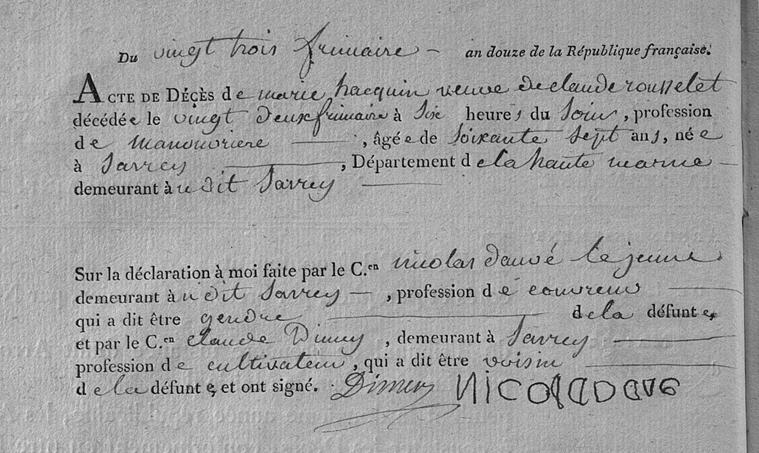 Du vingt trois frimaire — an douze de la République française.
ACTE DE DÉCÈS de marie hacquin veuve de claude rousselet
décédée le vingt deux frimaire à Six heures du Soir, profession
de manouvriere —, âgée de Soixante Sept ans, née
à Savrey —, Département de la haute marne —
demeurant à udit Savrey —
Sur la déclaration à moi faite par le C.en nicolas dauvé le jeune
demeurant à udit Savrey —, profession de couvreur —
qui a dit être gendre — de la défunte,
et par le C.en claude Dimey, demeurant à Savrey —
profession de cultivateur, qui a dit être voisin —
de la défunte, et ont signé. Dimey NICOLADAVE